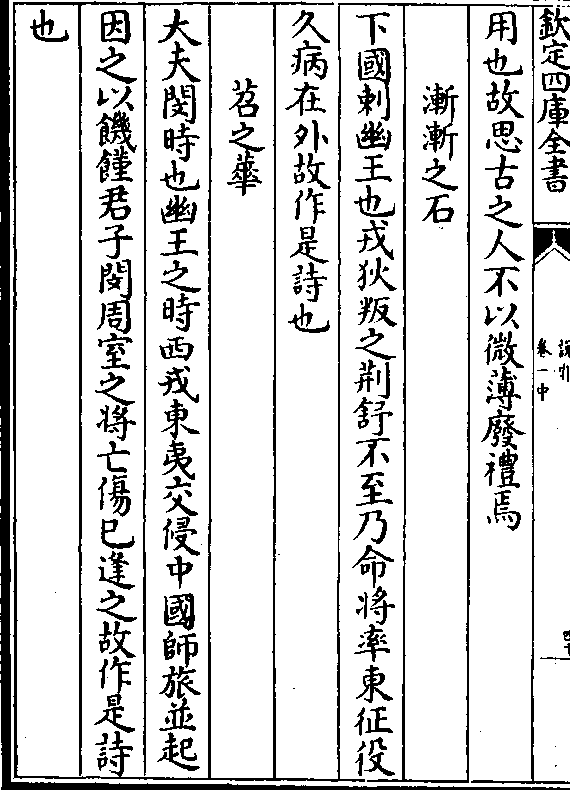 欽定四庫全書
卷一中
用也故思古之人不以微薄廢禮焉
漸漸之石
下國刺幽王也戎狄叛之荆舒不至乃命將率東征役
久病在外故作是詩也
苕之華
大夫閔時也幽王之時西戎東夷交侵中國師旅並起
因之以饑饉君子閔周室之將亡傷已逢之故作是詩
也